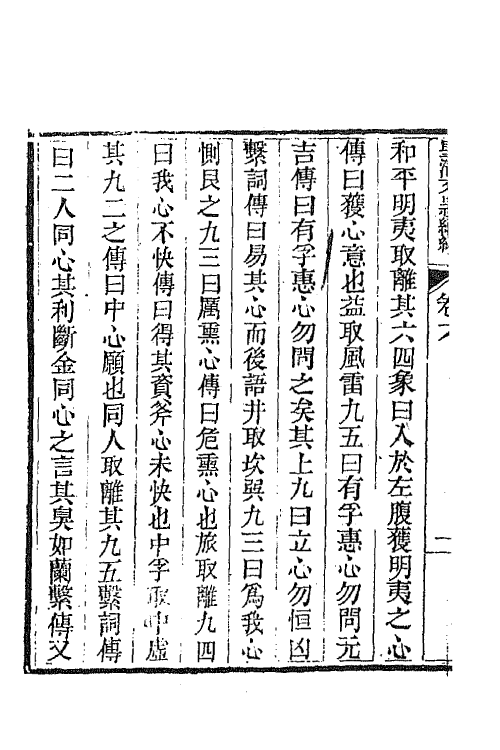 和平明夷取離其六四象曰入於左腹獲明夷之心
傳曰獲心意也益取風雷九五曰有孚惠心勿問元
吉傳曰有孚惠心勿問之矣其上九曰立心勿恒凶
繫詞傳曰易其心而後語井取坎巽九三曰爲我心
惻艮之九三曰厲熏心傳曰危熏心也旅取離九四
曰我心不快傳曰得其資斧心未快也中孚取中虛
其九二之傳曰中心願也同人取離其九五繫詞傳
曰二人同心其利斷金同心之言其臭如蘭繫傳又